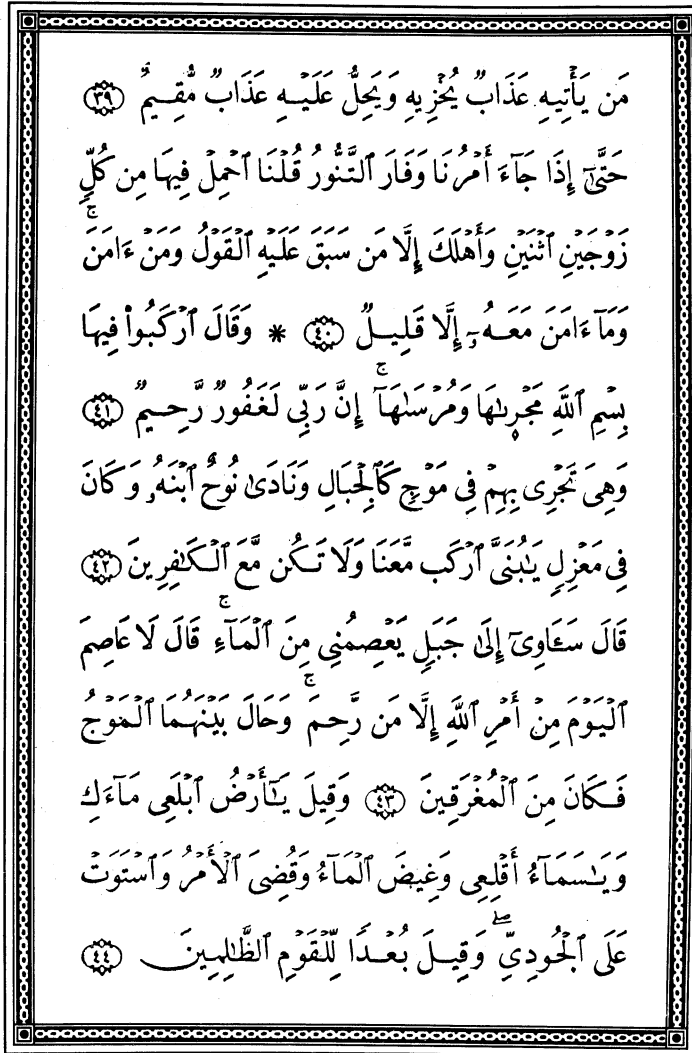 مَن يَأْتِيهِ عَذَابٌ يُخْزِيهِ وَيَحِلُّ عَلَيْهِ عَذَابٌ مُّقِيمٌ ٣٩
حَتَّىٰٓ إِذَا جَآءَ أَمْرُنَا وَفَارَ ٱلتَّنُّورُ قُلْنَا ٱحْمِلْ فِيهَا مِن كُلٍّ
زَوْجَيْنِ ٱثْنَيْنِ وَأَهْلَكَ إِلَّا مَن سَبَقَ عَلَيْهِ ٱلْقَوْلُ وَمَنْ ءَامَنَ ۚ
وَمَآ ءَامَنَ مَعَهُۥٓ إِلَّا قَلِيلٌ ٤٠ * وَقَالَ ٱرْكَبُوا۟ فِيهَا
بِسْمِ ٱللَّهِ مَجْر۪ىٰهَا وَمُرْسَىٰهَآ ۚ إِنَّ رَبِّى لَغَفُورٌ رَّحِيمٌ ٤١
وَهِىَ تَجْرِى بِهِمْ فِى مَوْجٍ كَٱلْجِبَالِ وَنَادَىٰ نُوحٌ ٱبْنَهُۥ وَكَانَ
فِى مَعْزِلٍ يَٰبُنَىَّ ٱرْكَب مَّعَنَا وَلَا تَكُن مَّعَ ٱلْكَٰفِرِينَ ٤٢
قَالَ سَـَٔاوِىٓ إِلَىٰ جَبَلٍ يَعْصِمُنِى مِنَ ٱلْمَآءِ ۚ قَالَ لَا عَاصِمَ
ٱلْيَوْمَ مِنْ أَمْرِ ٱللَّهِ إِلَّا مَن رَّحِمَ ۚ وَحَالَ بَيْنَهُمَا ٱلْمَوْجُ
فَكَانَ مِنَ ٱلْمُغْرَقِينَ ٤٣ وَقِيلَ يَٰٓأَرْضُ ٱبْلَعِى مَآءَكِ
وَيَٰسَمَآءُ أَقْلِعِى وَغِيضَ ٱلْمَآءُ وَقُضِىَ ٱلْأَمْرُ وَٱسْتَوَتْ
عَلَى ٱلْجُودِىِّ ۖ وَقِيلَ بُعْدًا لِّلْقَوْمِ ٱلظَّٰلِمِينَ ٤٤